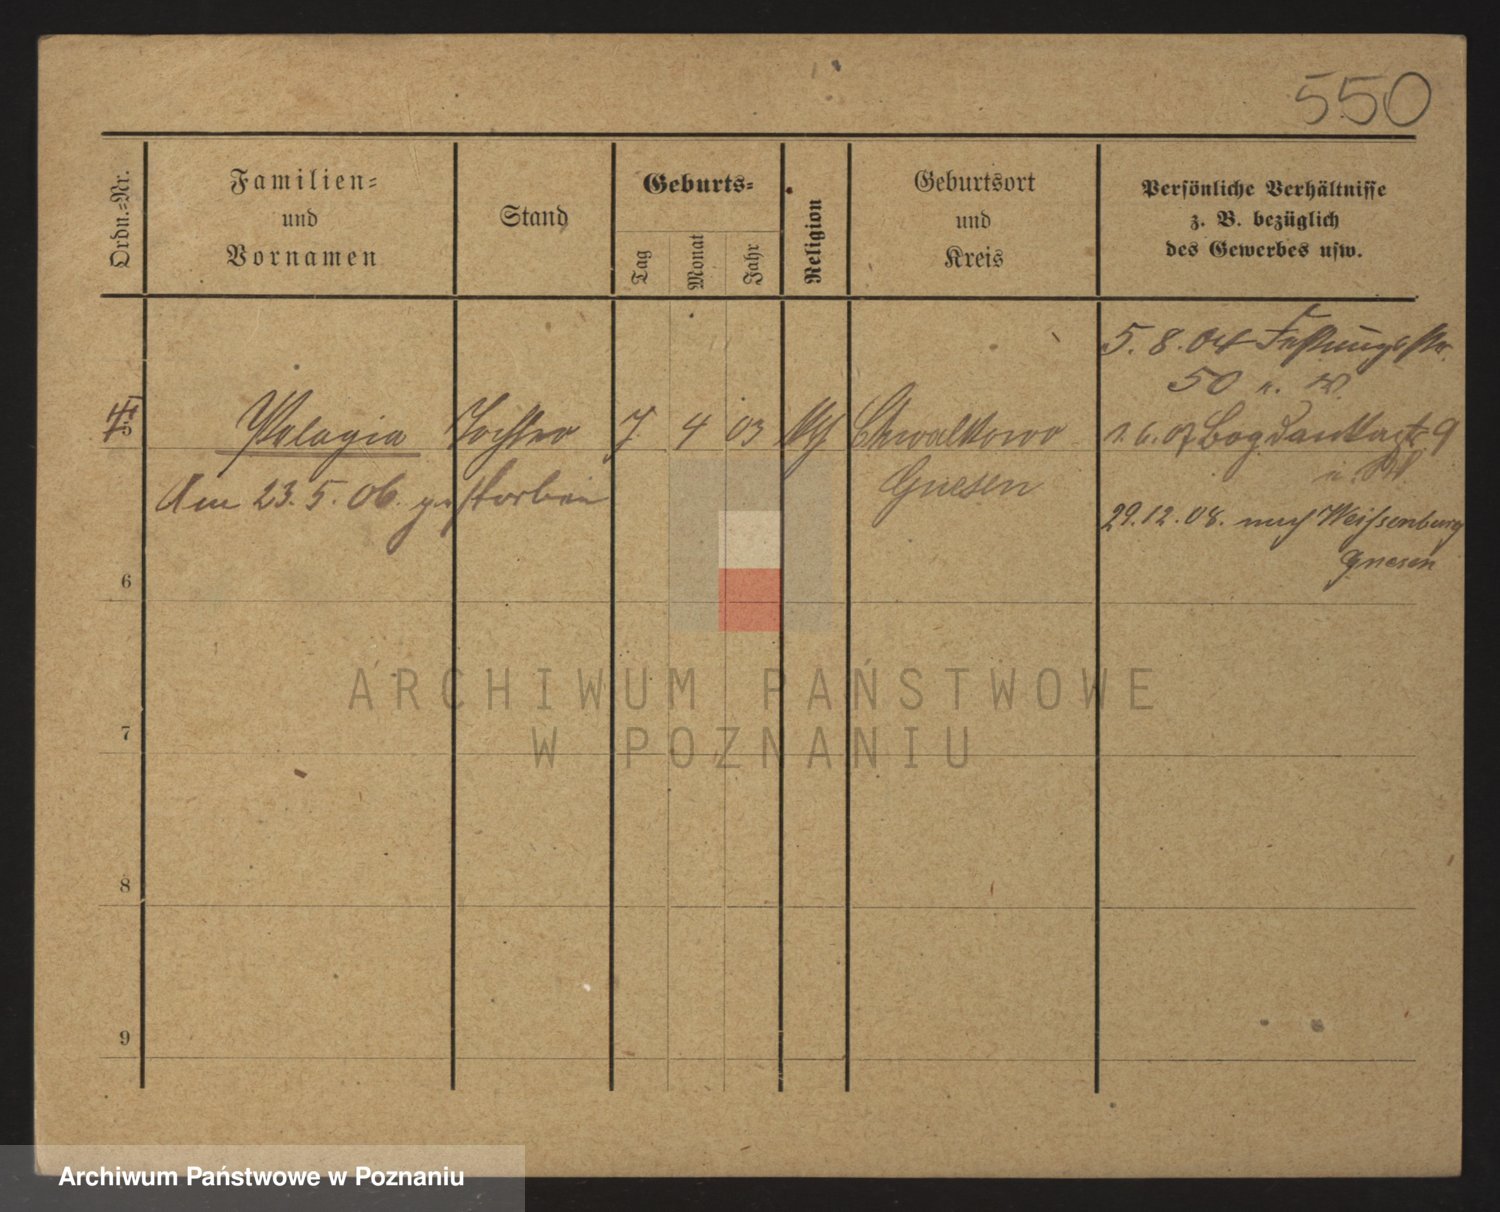 550
Ordn.-Nr.
Familien-
und
Vornamen
Stand
Geburts-
Tag
Monat
Jahr
Religion
Geburtsort
und
Kreis
Persönliche Verhältnisse
z. B. bezüglich
des Gewerbes usw.
5.8.04 Festungsstr.
50 u. W.
5
Pelagia Tochter 7 4 03 kth Chwalkowo
1.6.07 Bogdankastr 9
Gnesen
Am 23.5.06. gestorben
29.12.08. nach Weißenburg
Gnesen
6
7
8
9
ARCHIWUM PAŃSTWOWE
W POZNANIU
Archiwum Państwowe w Poznaniu